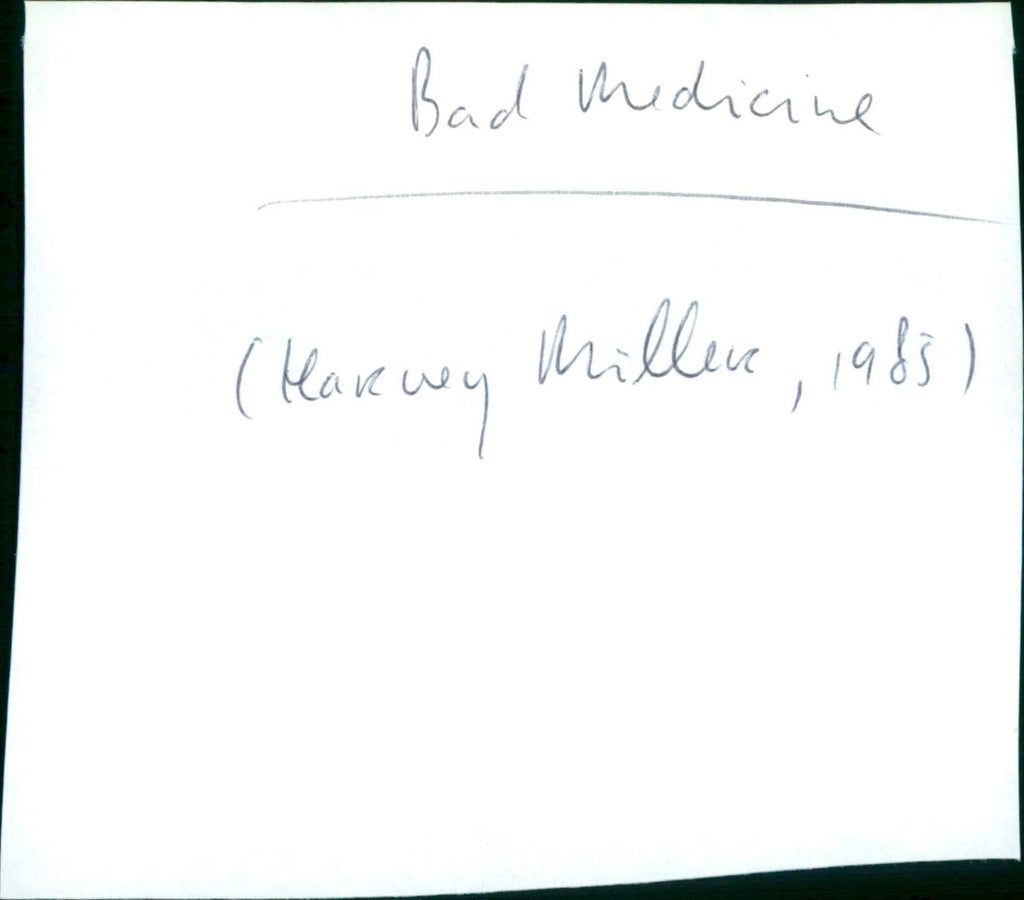 Bad Medicine
(Harvey Miller, 1985)